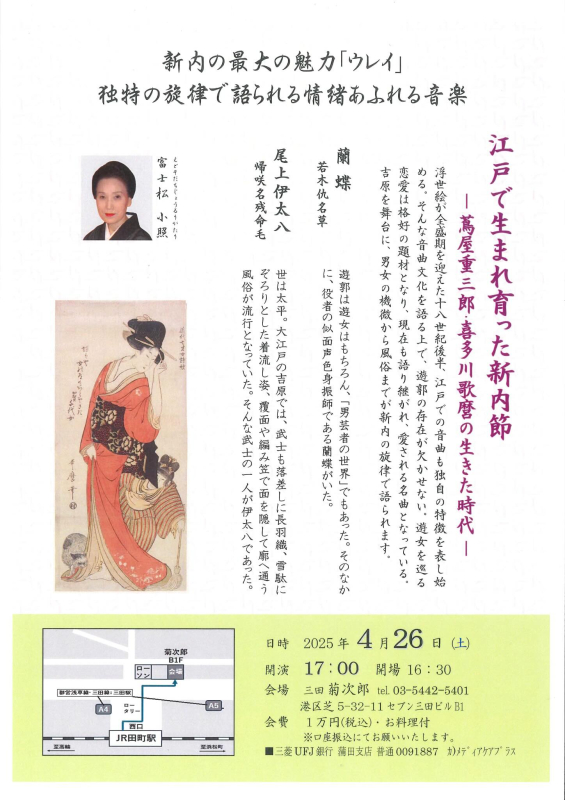 新内の最大の魅力「ウレイ」
独特の旋律で語られる情緒あふれる音楽
江戸で生まれ育った新内節
― 蔦屋重三郎・喜多川歌麿の生きた時代 ―
浮世絵が全盛期を迎えた十八世紀後半、江戸での音曲も独自の特徴を表し始
める。そんな音曲文化を語る上で、遊郭の存在が欠かせない。遊女を巡る
恋愛は格好の題材となり、現在も語り継がれ、愛される名曲となっている。
吉原を舞台に、男女の機微から風俗までが新内の旋律で語られます。
蘭蝶
若木仇名草
遊郭は遊女はもちろん、「男芸者の世界」でもあった。そのなか
に、役者の似面声色身振師である蘭蝶がいた。
尾上伊太八
帰咲名残命毛
世は太平。大江戸の吉原では、武士も落差しに長羽織、雪駄に
ぞろりとした着流し姿、覆面や編み笠で面を隠して廓へ通う
風俗が流行となっていた。そんな武士の一人が伊太八であった。
えどそだちじょうるりがたり
富士松 小照
哥麿筆
菊次郎
B1F
ローソン
会場
都営浅草線・三田線:三田駅
A4
ロータリー
A5
西口
JR田町駅
至高輪
至浜松町
日時 2025年 4月26日（土）
開演 17:00 開場 16:30
会場 三田 菊次郎 tel. 03-5442-5401
港区芝5-32-11 セブン三田ビルB1
会費 1万円(税込)・お料理付
※口座振込にてお願いいたします。
■三菱UFJ銀行 蒲田支店 普通0091887 ｶ)ﾒﾃﾞｨｱｹｱﾌﾟﾗｽ